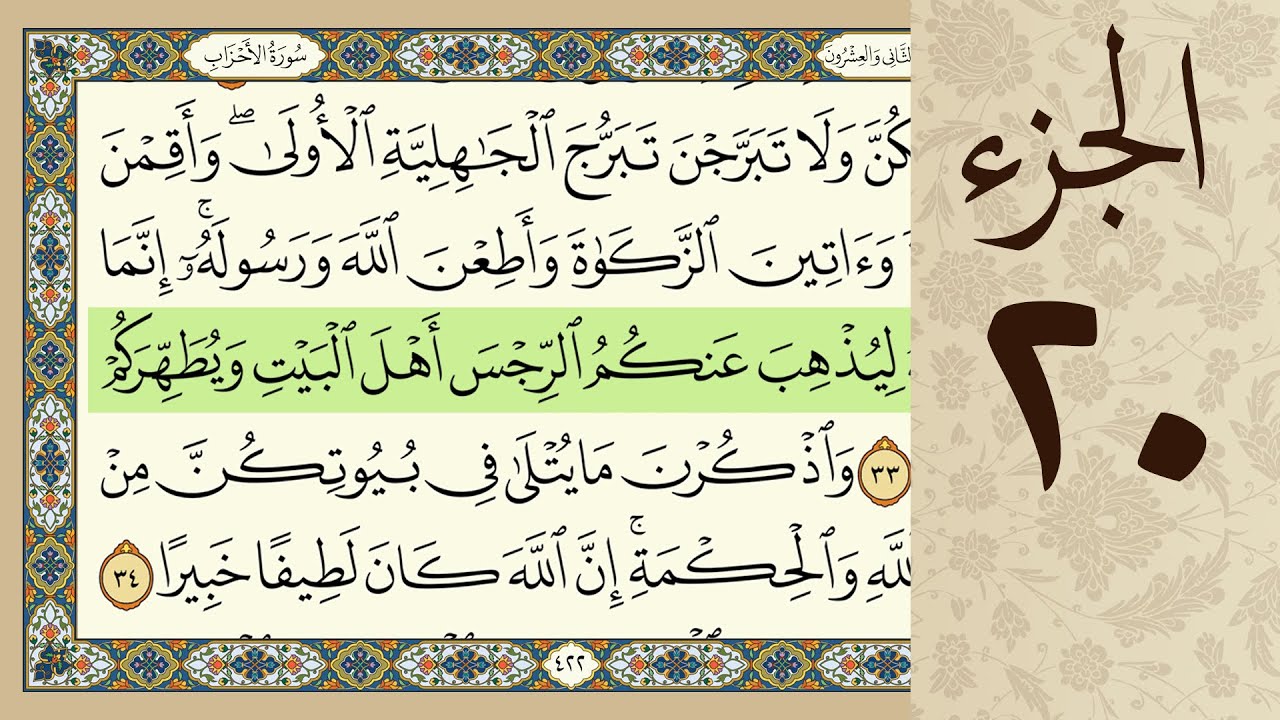 سُورَةُ الأَحْزَابِ
الثَّانِي وَالْعِشْرُونَ
كُنَّ وَلَا تَبَرَّجْنَ تَبَرُّجَ ٱلْجَـٰهِلِيَّةِ ٱلْأُولَىٰ ۖ وَأَقِمْنَ
وَءَاتِينَ ٱلزَّكَوٰةَ وَأَطِعْنَ ٱللَّهَ وَرَسُولَهُۥٓ ۚ إِنَّمَا
لِيُذْهِبَ عَنكُمُ ٱلرِّجْسَ أَهْلَ ٱلْبَيْتِ وَيُطَهِّرَكُمْ
٣٣ وَٱذْكُرْنَ مَا يُتْلَىٰ فِى بُيُوتِكُنَّ مِنْ
ٱللَّهِ وَٱلْحِكْمَةِ ۚ إِنَّ ٱللَّهَ كَانَ لَطِيفًا خَبِيرًا ٣٤
٤٢٢
الجزء
٢٠